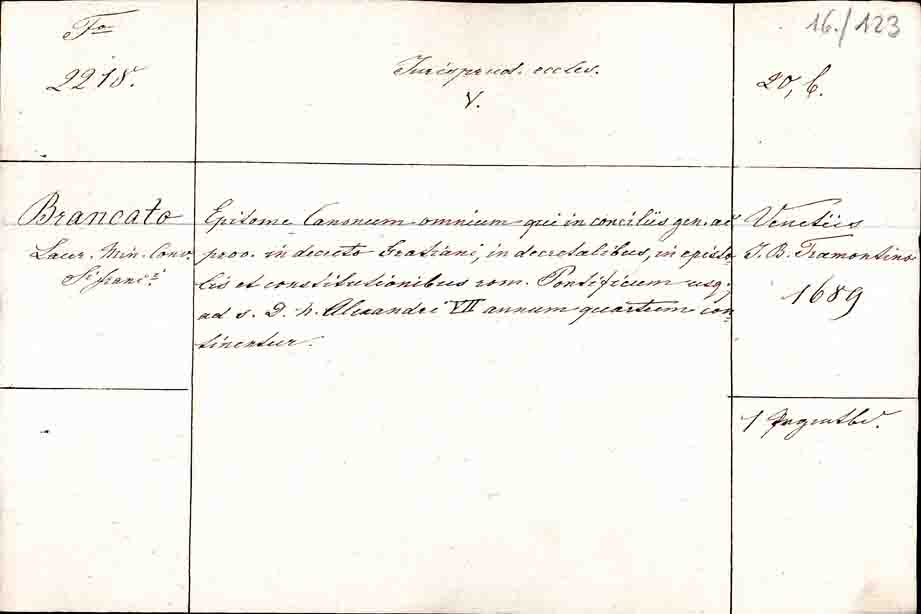 Fo
2218.
Jurisprud. eccles.
V.
16./123
20, b.
Brancato
Laur. Min. Conv.
St. Franci.
Epitome Canonum omnium qui in conciliis gen. ac
prov. in decreto Gratiani, in decretalibus, in episto-
lis et constitutionibus rom. Pontificum usq.
ad s. D. n. Alexandri VII annum quartum con-
tinentur.
Venetiis
J. B. Tramontino
1689
1 Prgmtbd.